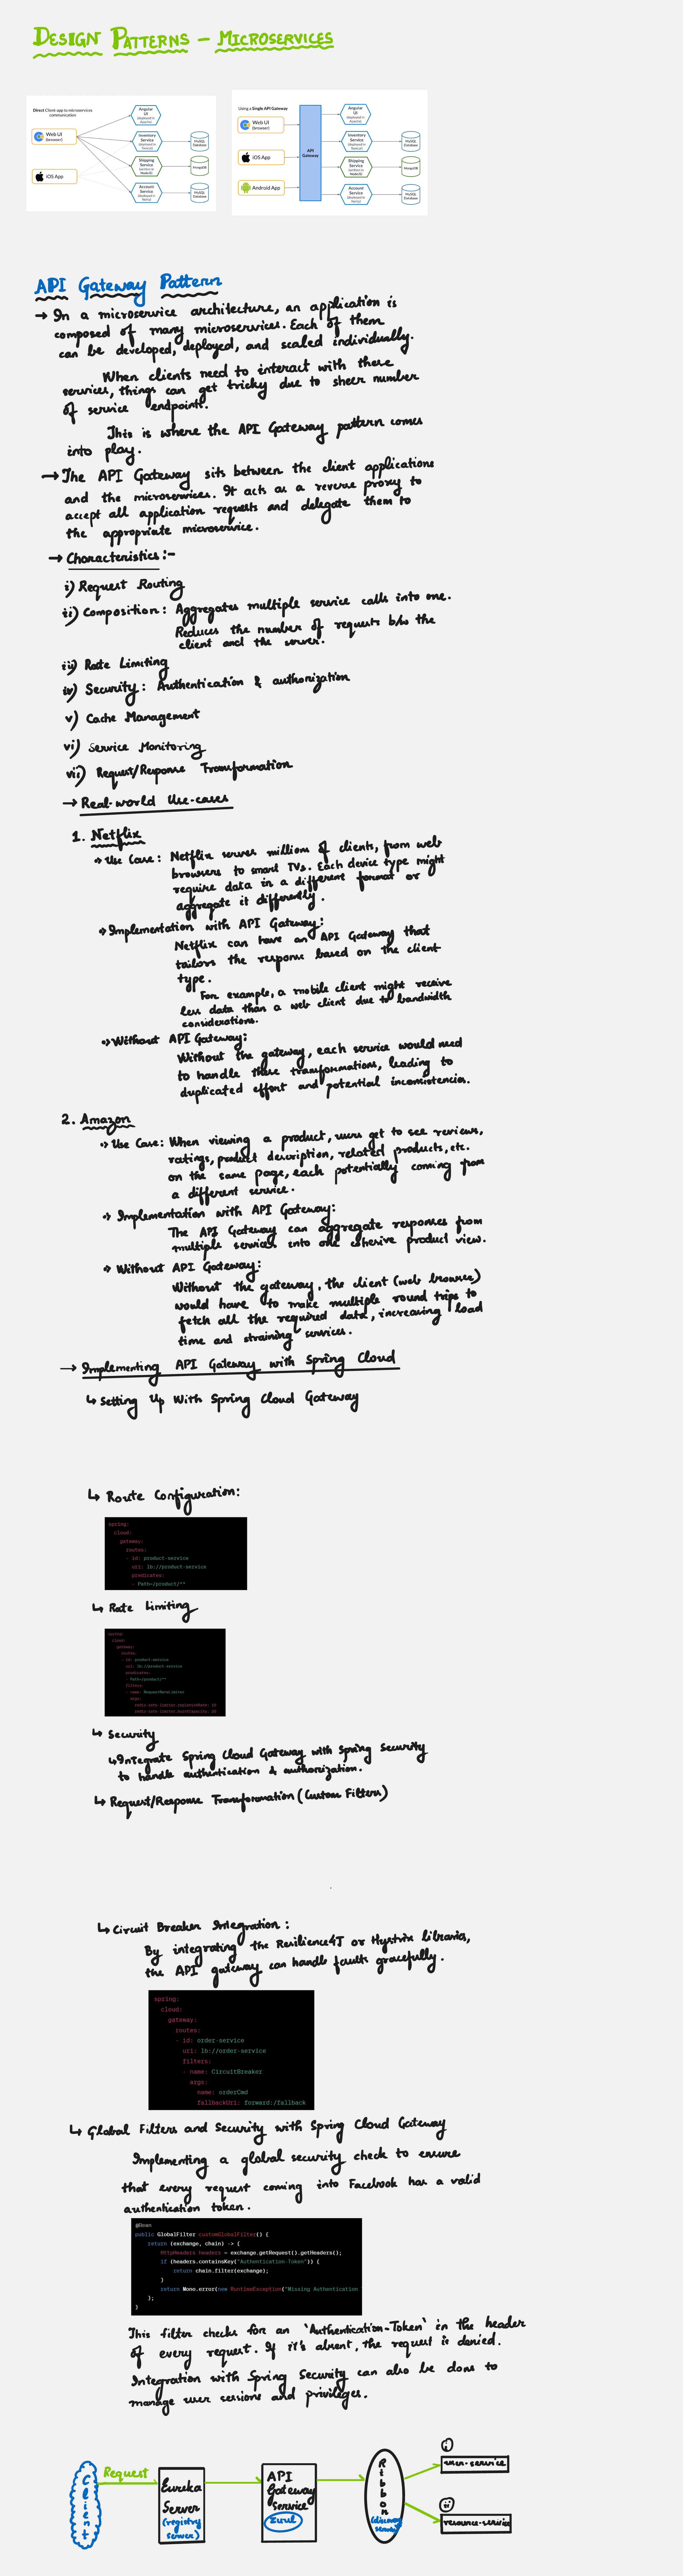 DESIGN PATTERNS - MICROSERVICES
Direct Client app to microservices
communication
Web UI
(browser)
iOS App
Angular
UI
(deployed in
Apache)
Inventory
Service
(deployed in
Tomcat)
MySQL
Database
Shipping
Service
(written in
NodeJS)
MongoDB
Account
Service
(deployed in
Netty)
MySQL
Database
Using a Single API Gateway
Web UI
(browser)
iOS App
Android App
API
Gateway
Angular
UI
(deployed in
Apache)
Inventory
Service
(deployed in
Tomcat)
MySQL
Database
Shipping
Service
(written in
NodeJS)
MongoDB
Account
Service
(deployed in
Netty)
MySQL
Database
API Gateway Pattern
→ In a microservice architecture, an application is
composed of many microservices. Each of them
can be developed, deployed, and scaled individually.
When clients need to interact with these
services, things can get tricky due to sheer number
of service endpoints.
This is where the API Gateway pattern comes
into play.
→ The API Gateway sits between the client applications
and the microservices. It acts as a reverse proxy to
accept all application requests and delegate them to
the appropriate microservice.
→ Characteristics :-
i) Request Routing
ii) Composition : Aggregates multiple service calls into one.
Reduces the number of requests b/w the
client and the server.
iii) Rate Limiting
iv) Security : Authentication & authorization
v) Cache Management
vi) Service Monitoring
vii) Request/Response Transformation
→ Real-world Use-cases
1. Netflix
Use Case : Netflix serves millions of clients, from web
browsers to smart TVs. Each device type might
require data in a different format or
aggregate it differently.
Implementation with API Gateway:
Netflix can have an API Gateway that
tailors the response based on the client
type.
For example, a mobile client might receive
less data than a web client due to bandwidth
considerations.
Without API Gateway:
Without the gateway, each service would need
to handle these transformations, leading to
duplicated effort and potential inconsistencies.
2. Amazon
Use Case: When viewing a product, users get to see reviews,
ratings, product description, related products, etc.
on the same page, each potentially coming from
a different service.
Implementation with API Gateway:
The API Gateway can aggregate responses from
multiple services into one cohesive product view.
Without API Gateway:
Without the gateway, the client (web browser)
would have to make multiple round trips to
fetch all the required data, increasing load
time and straining services.
→ Implementing API Gateway with Spring Cloud
↳ Setting Up With Spring Cloud Gateway
↳ Route Configuration:
spring:
cloud:
gateway:
routes:
- id: product-service
uri: lb://product-service
predicates:
- Path=/product/**
↳ Rate Limiting
spring:
cloud:
gateway:
routes:
- id: product-service
uri: lb://product-service
predicates:
- Path=/product/**
filters:
- name: RequestRateLimiter
args:
redis-rate-limiter.replenishRate: 10
redis-rate-limiter.burstCapacity: 20
↳ Security
↳ Integrate Spring Cloud Gateway with Spring Security
to handle authentication & authorization.
↳ Request/Response Transformation (Custom Filters)
↳ Circuit Breaker Integration :
By integrating the Resilience4J or Hystrix libraries,
the API gateway can handle faults gracefully.
spring:
cloud:
gateway:
routes:
- id: order-service
uri: lb://order-service
filters:
- name: CircuitBreaker
args:
name: orderCmd
fallbackUri: forward:/fallback
↳ Global Filters and Security with Spring Cloud Gateway
Implementing a global security check to ensure
that every request coming into Facebook has a valid
authentication token.
@Bean
public GlobalFilter customGlobalFilter() {
return (exchange, chain) -> {
HttpHeaders headers = exchange.getRequest().getHeaders();
if (headers.containsKey("Authentication-Token")) {
return chain.filter(exchange);
}
return Mono.error(new RuntimeException("Missing Authentication
};
}
This filter checks for an 'Authentication-Token' in the header
of every request. If it's absent, the request is denied.
Integration with Spring Security can also be done to
manage user sessions and privileges.
Client
Request
Eureka
Server
(registry
server)
API
Gateway
Service
Zuul
Ribbon
(discovery
server)
i
user-service
ii
resource-service